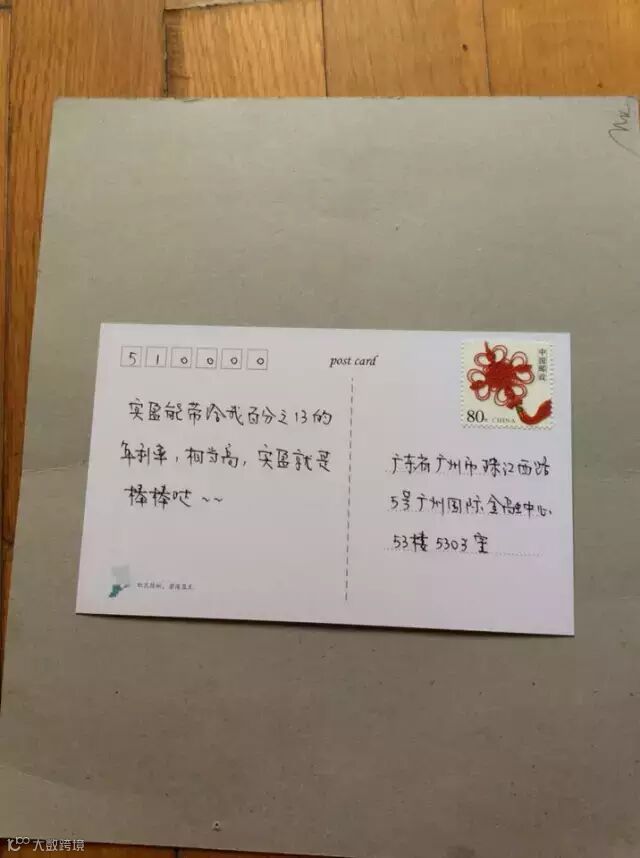 510000
post card
中国邮政
80分 CHINA
实盈能带给我百分之13的
年利率，相当高，实盈就是
棒棒哒~~
广东省广州市珠江西路
5号广州国际金融中心
53楼5303室
大数跨境